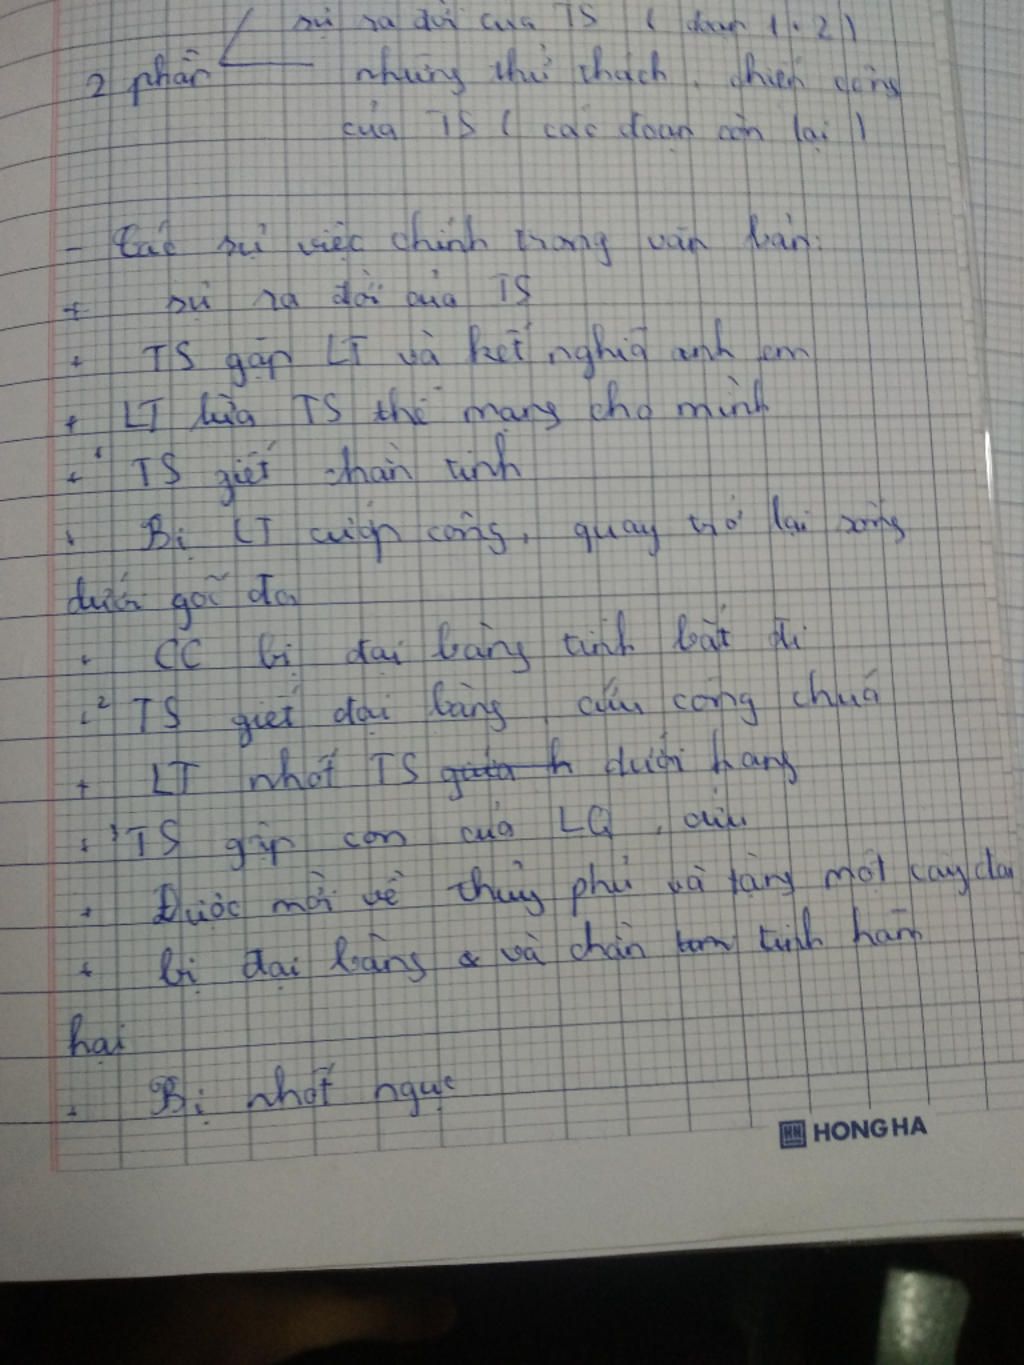 sự ra đời của TS ( đoạn 1.2)
2 phần những thử thách, chiến công
của TS ( các đoạn còn lại )
- Các sự việc chính trong văn bản:
+ sự ra đời của TS
+ TS gặp LT và kết nghĩa anh em
+ LT lừa TS thế mạng cho mình
+ 1 TS giết chằn tinh
+ Bị LT cướp công, quay trở lại sống
dưới gốc đa
+ CC bị đại bàng tinh bắt đi
+ 2 TS giết đại bàng, cứu công chúa
+ LT nhốt TS dưới hang
+ 3 TS gặp con của LQ, cứu
+ Được mời về thủy phủ và tặng một cây đàn
+ bị đại bàng và chằn tinh hãm
hại
+ Bị nhốt ngục
HONG HA